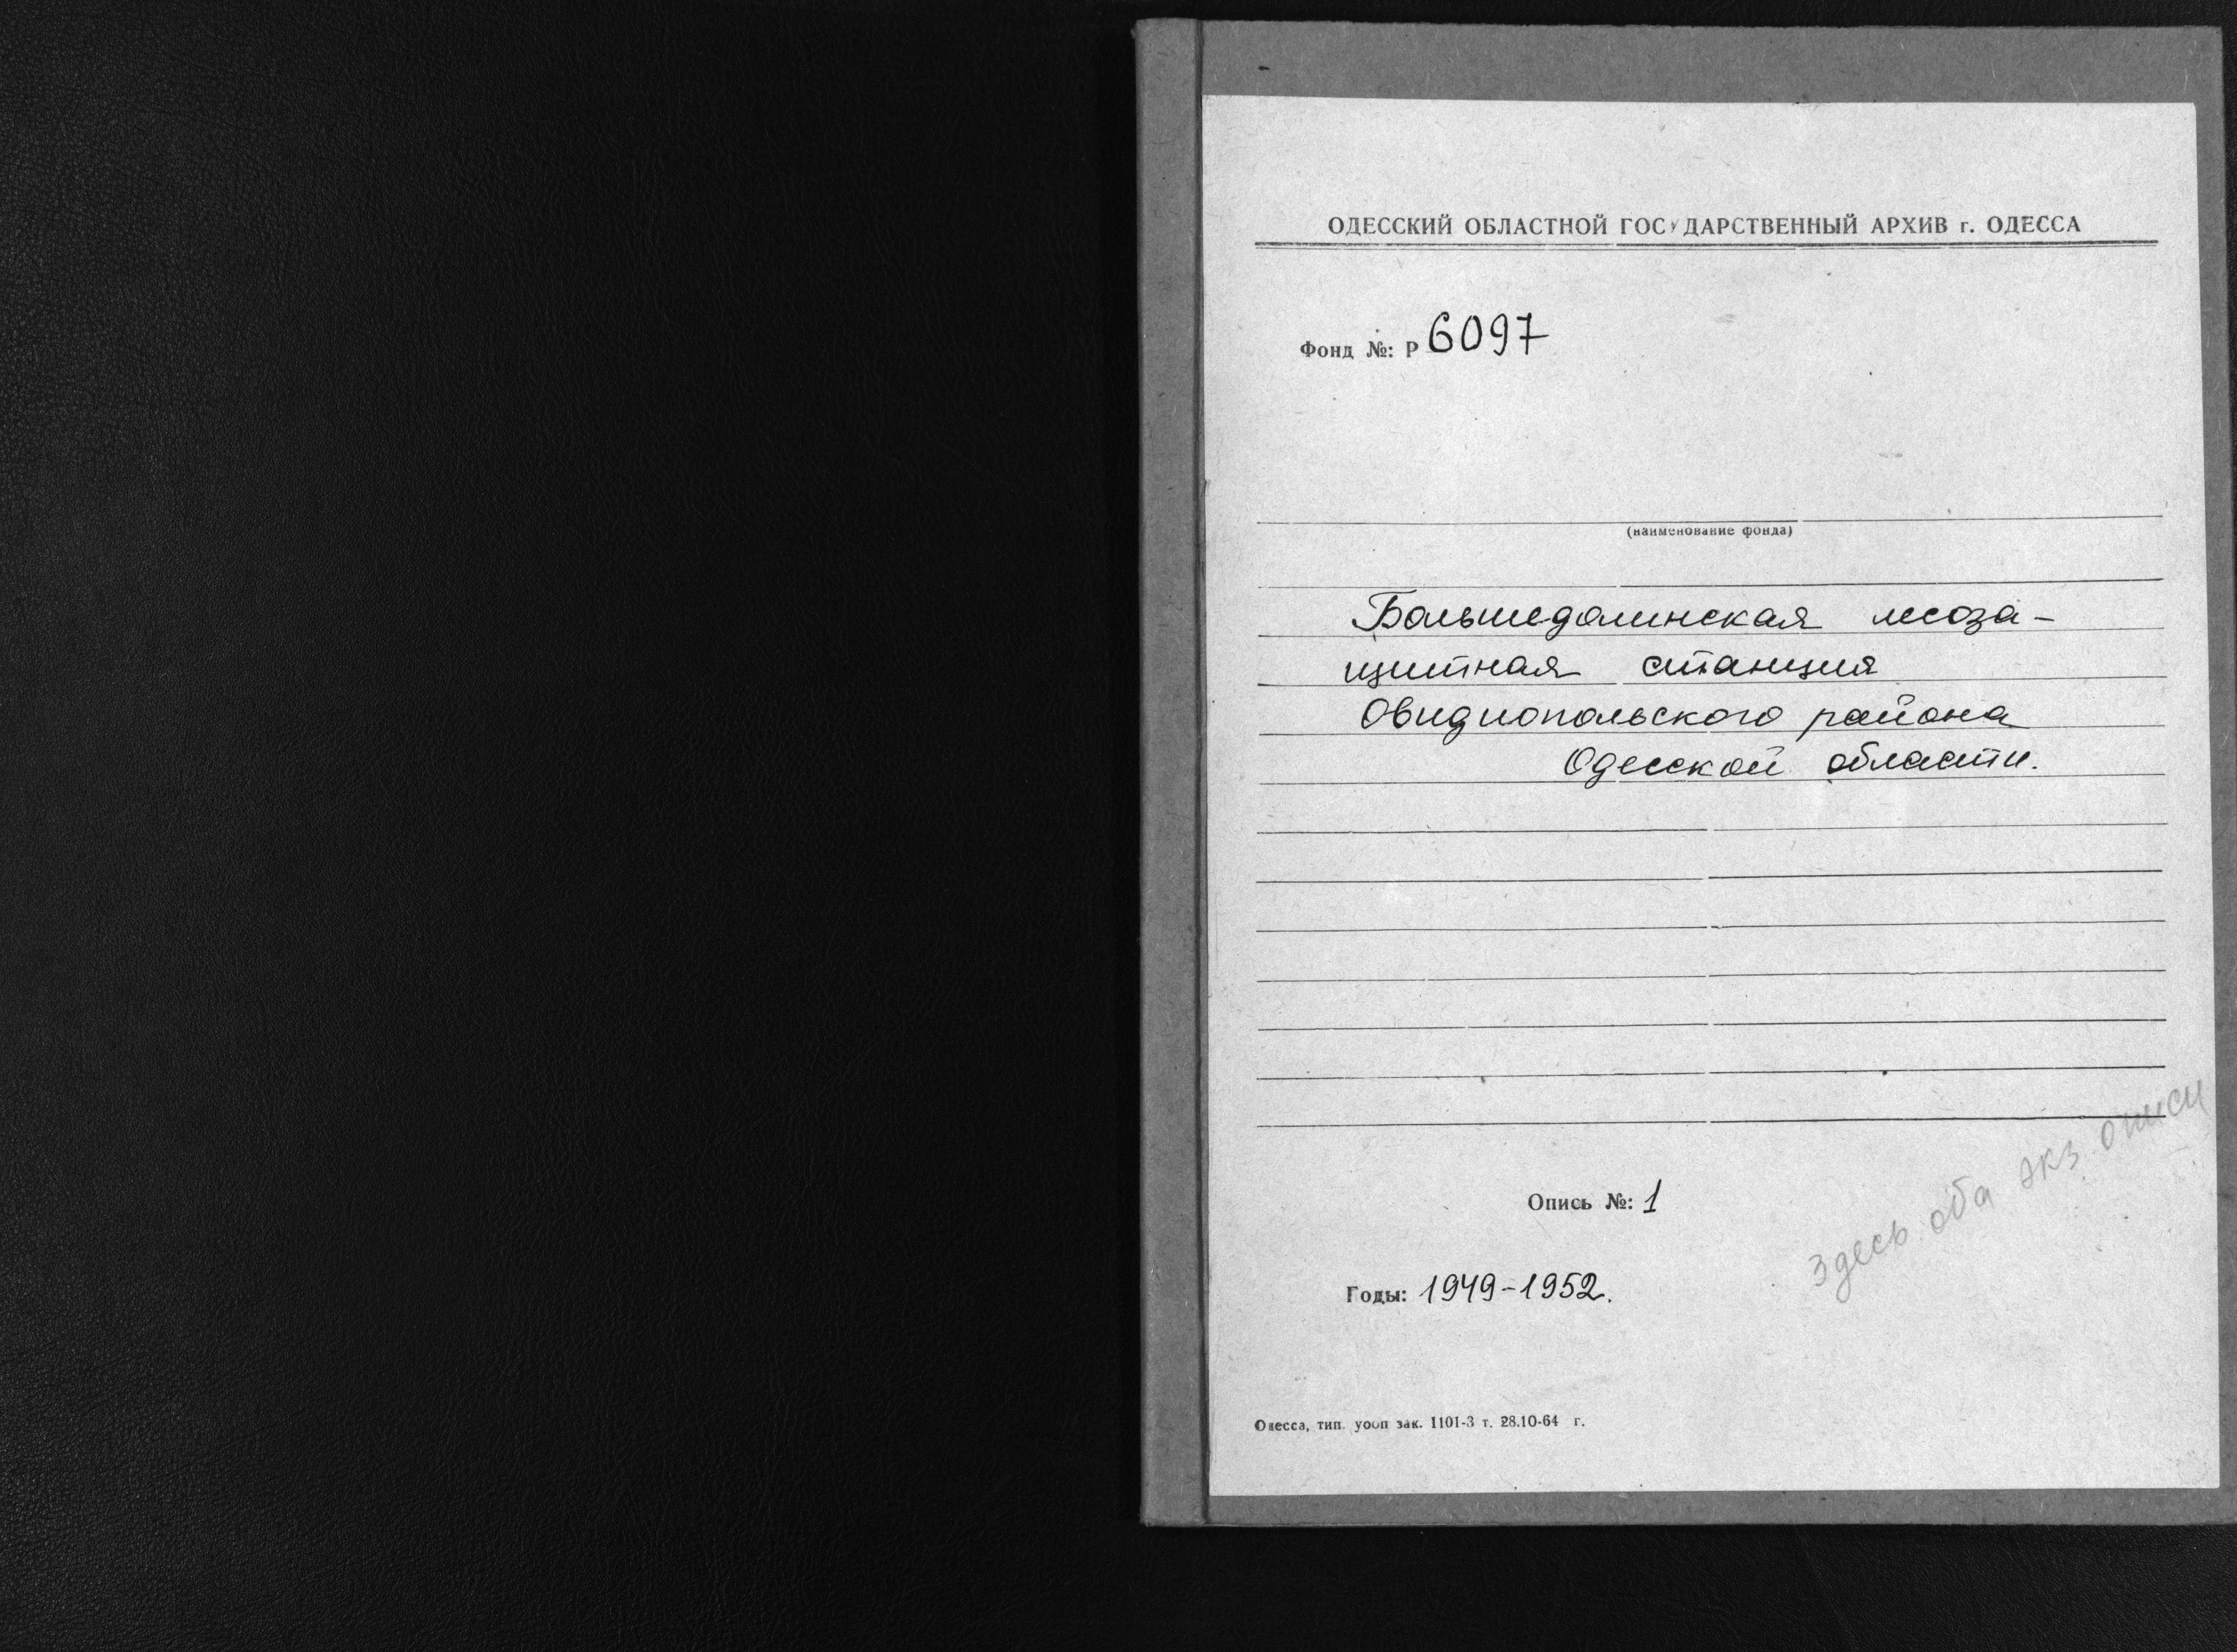 ОДЕССКИЙ ОБЛАСТНОЙ ГОСУДАРСТВЕННЫЙ АРХИВ г. ОДЕССА
Фонд №: Р 6097
(наименование фонда)
Большедолинская лесоза-
щитная станция
Овидиопольского района
Одесской области.
Здесь оба экз. описи
Опись №: 1
Годы: 1949-1952.
Одесса, тип. уооп зак. 1101-3 т. 28.10-64 г.